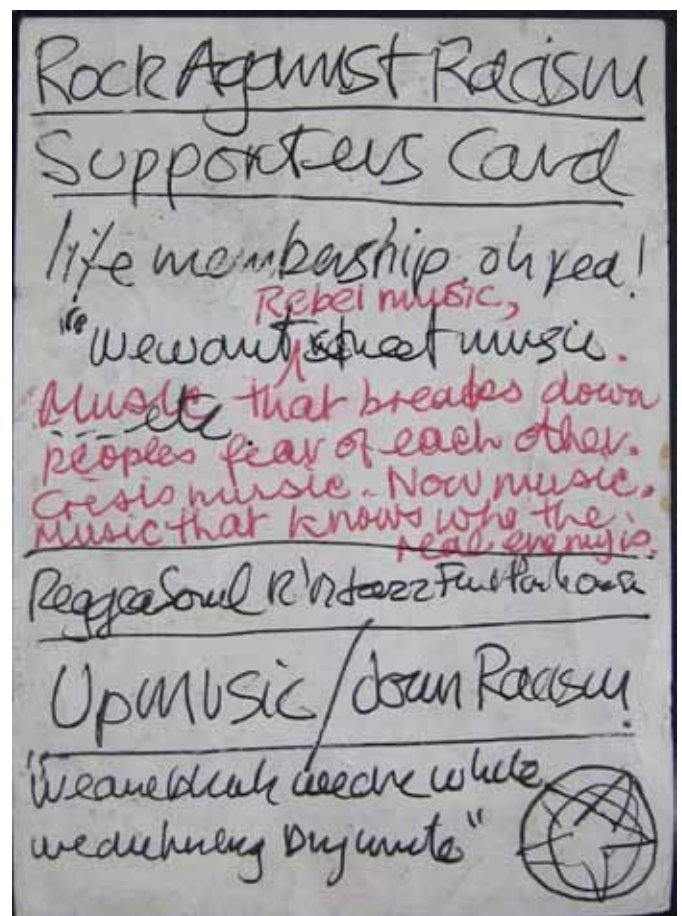 Rock Against Racism
Supporters Card
life membership. oh yea!
Rebel music,
"We want street music.
Music that breaks down
etc
peoples fear of each other.
Crisis music. Now music.
Music that knows who the
real enemy is.
Reggae Soul R'n Jazz Funk
Up music / down Racism!
"We are black we are white
we are"